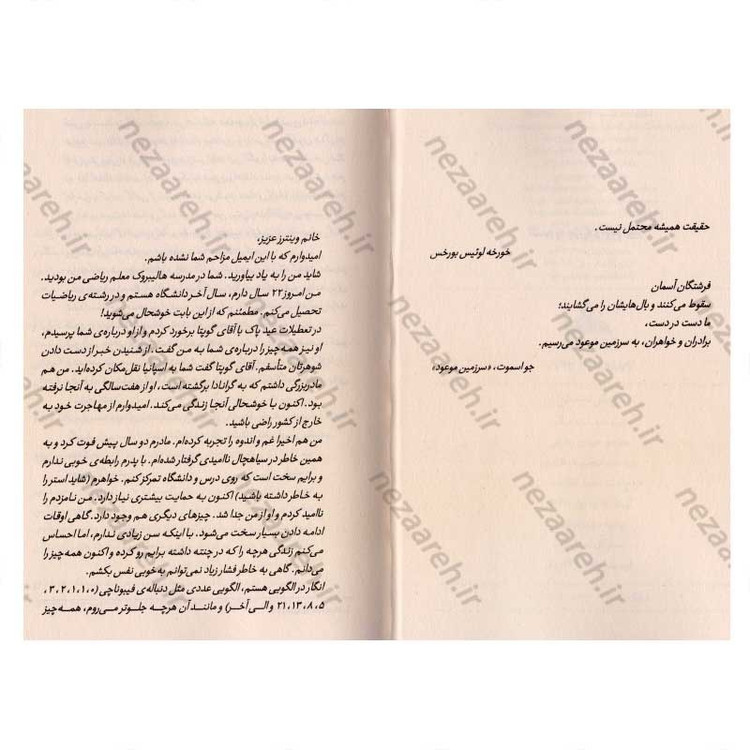 حقیقت همیشه محتمل نیست.
خورخه لوئیس بورخس
فرشتگان آسمان
سقوط می‌کنند و بال‌هایشان را می‌گشایند؛
ما دست در دست،
برادران و خواهران، به سرزمین موعود می‌رسیم.
جو اسموت، «سرزمین موعود»
خانم وینترز عزیز،
امیدوارم که با این ایمیل مزاحم شما نشده باشم.
شاید من را به یاد بیاورید. شما در مدرسه هالیبروک معلم ریاضی من بودید.
من امروز ۲۲ سال دارم، سال آخر دانشگاه هستم و در رشته‌ی ریاضیات
تحصیل می‌کنم. مطمئنم که از این بابت خوشحال می‌شوید!
در تعطیلات عید پاک با آقای گوپتا برخورد کردم و از او درباره‌ی شما پرسیدم،
او نیز همه چیز را درباره‌ی شما به من گفت. از شنیدن خبر از دست دادن
شوهرتان متأسفم. آقای گوپتا گفت شما به اسپانیا نقل‌مکان کرده‌اید. من هم
مادربزرگی داشتم که به گرانادا برگشته است، او از هفت‌سالگی به آنجا نرفته
بود. اکنون با خوشحالی آنجا زندگی می‌کند. امیدوارم از مهاجرت خود به
خارج از کشور راضی باشید.
من هم اخیرا غم و اندوه را تجربه کرده‌ام. مادرم دو سال پیش فوت کرد و به
همین خاطر در سیاهچال ناامیدی گرفتار شده‌ام. با پدرم رابطه‌ی خوبی ندارم
و برایم سخت است که روی درس و دانشگاه تمرکز کنم. خواهرم (شاید استر را
به خاطر داشته باشید) اکنون به حمایت بیشتری نیاز دارد. من نامزدم را
ناامید کردم و او از من جدا شد. چیزهای دیگری هم وجود دارد. گاهی اوقات
ادامه دادن بسیار سخت می‌شود. با اینکه سن زیادی ندارم، اما احساس
می‌کنم زندگی هرچه را که در چنته داشته برایم رو کرده و اکنون همه چیز را
می‌دانم. گاهی به خاطر فشار زیاد نمی‌توانم به‌خوبی نفس بکشم.
انگار در الگویی هستم، الگویی عددی مثل دنباله‌ی فیبوناچی (۰، ۱، ۱، ۲، ۳،
۵، ۸، ۱۳، ۲۱ و الی آخر) و مانند آن هرچه جلوتر می‌روم، همه چیز
nezaareh.ir
nezaareh.ir
nezaareh.ir
nezaareh.ir
nezaareh.ir
nezaareh.ir
nezaareh.ir
nezaareh.ir
nezaareh.ir
nezaareh.ir